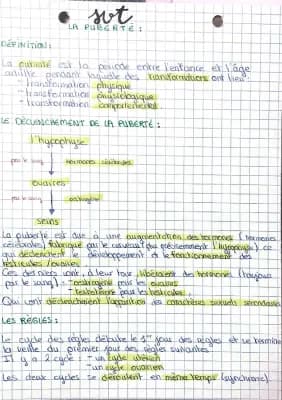 svt
LA PUBERTÉ :
DÉFINITION :
La puberté est la période entre l'enfance et l'âge
adulte pendant laquelle des transformations ont lieu :
- transformation physique
- transformation physiologique
- transformation comportementale
LE DÉCLENCHEMENT DE LA PUBERTÉ :
l'hypophyse
par le sang hormones cérébrales
ovaires
par le sang œstrogène
seins
La puberté est due à une augmentation des hormones ( hormones
cérébrales) fabriqué par le cerveau ( plus précisément l'hypophyse) ce
qui déclenchent le développement et le fonctionnement des
testicules / ovaires.
Ces derniers vont, à leur tour, libérer des hormones (toujours
par le sang) : - œstrogène pour les ovaires
- testostérone pour les testicules.
Qui vont déclencher l'apparition des caractères sexuels secondaires
LES RÈGLES :
Le cycle des règles débute le 1er jour des règles et se termine
la veille du premier jour des règles suivantes.
Il y a 2 cycle : - un cycle utérien
- un cycle ovarien
Les deux cycles se déroulent en même temps (synchrone)